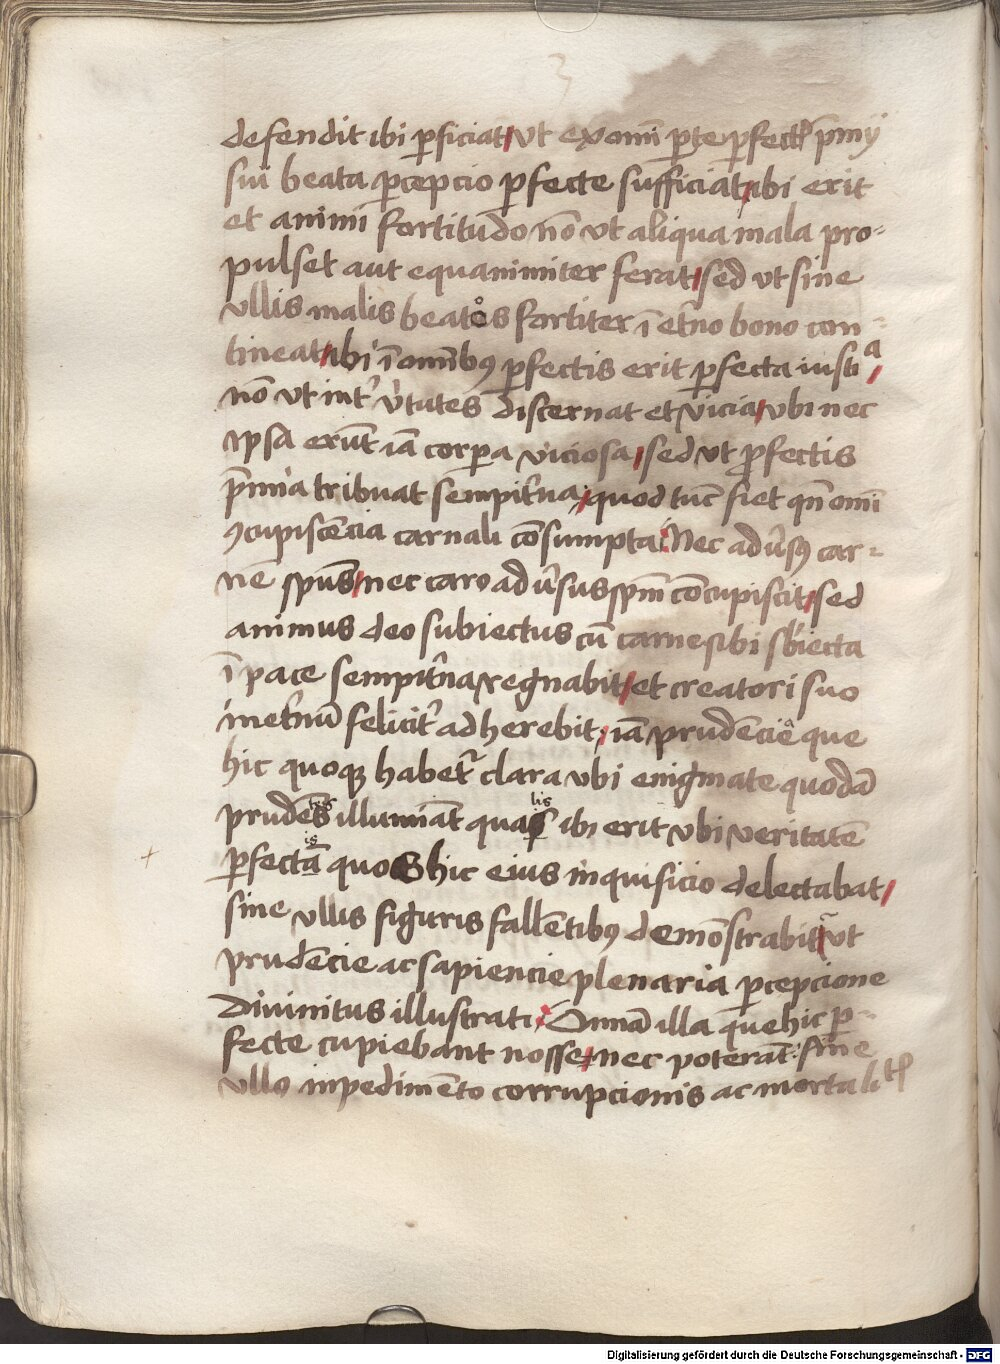 3
defendit ibi ꝑficiat/ vt ex om̄i ꝑte ꝑfectꝭ p̄mij
sui beata ꝑcepcio ꝑfecte sufficiat/ ibi erit
et animi fortitudo nō vt aliqua mala pro-
pulset aut equanimiter ferat/ sed vt sine
vllis malis beatos fortiter ī et̄no bono con-
tineat/ ibi ī om̄ibꝯ ꝑfectis erit ꝑfecta iustiᵃ/
nō vt int̓ v̓tutes discernat et vicia/ vbi nec
ipsa erūt iā corꝑa viciosa/ sed vt ꝑfectis
p̄mia tribuat sempit̓na/ quod tūc fiet qn̄ om̄i
ꝯcupiscēcia carnali cōsumpta: Nec adũsꝯ car-
nē spūs/ nec caro adũsus spm̄ cōcupiscit/ sed
animus deo subiectus cū carne sibi sb̓iecta
ī pace sempit̓na regnabit/ et creatori suo
inet̓nū felicit̓ adherebit/ iā prudēcie que
hic quoqꝫ habet᷑ clara vbi enigmate quodā
prudēs illumīat qualis ibi erit vbi veritatē
ꝑfectā quos hic eius inquisicio delectabat/
sine vllis figuris fallētibꝯ demōstrabit/ vt
prudēcie ac sapiencie plenaria ꝑcepcione
diuinitus illustrati/ Omā illa que hic ꝑ-
fecte cupiebant nosse/ nec poterāt: sine
vllo inpedimēto corrupcionis ac mortalitꝭ
Digitalisierung gefördert durch die Deutsche Forschungsgemeinschaft - DFG